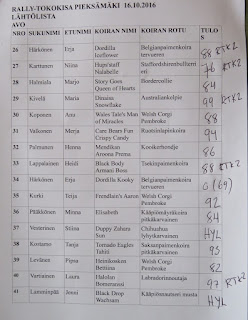 RALLY-TOKOKISA PIEKSÄMÄKI 16.10.2016
LÄHTÖLISTA
AVO
NRO SUKUNIMI ETUNIMI KOIRAN NIMI KOIRAN ROTU TULOS
26 Härkönen Erja Dordilla Iceflower Belgianpaimenkoira tervueren 88 RTK2
27 Karttunen Niina Hups'staff Nalabelle Staffordshirenbullterrieri 76 RTK2
28 Halmiala Marjo Story Goes Queen of Hearts Bordercollie 84
29 Kivelä Maria Dinaira Snowflake Australiankelpie 99 RTK2
30 Koponen Anu Wales Tale's Man of Miracles Welsh Corgi Pembroke 88
31 Valkonen Merja Care Bears Fun Crispy Candy Ruotsinlapinkoira 94
32 Pulmanen Henna Mendikan Aroona Prema Kooikerhondje 86
33 Lappalainen Heidi Black Body Armani Boss Tsekinpaimenkoira 88 RTK2
34 Härkönen Erja Dordilla Kooky Belgianpaimenkoira tervueren 0 (69)
35 Korki Teija Frendlain's Aaron Welsh Corgi Pembroke 92
36 Pääkkönen Minna Elisabeth Kääpiövillakoira pitkäkarvainen 84
37 Vesterinen Stiina Duppy Zahara Sun Chihuahua lyhytkarvainen HYL
38 Kontano Tanja Tornado Eagles Tahiti Saksanpaimenkoira pitkäkarvainen 93
39 Levänen Pipsa Heimkosken Bertta Welsh Corgi Pembroke 82
40 Vartiainen Laura Halulan Romeronsai Labradorinnoutaja 97 RTK2
41 Lamminpää Jonni Black Drop Wachram Kääpiösnautseri musta HYL